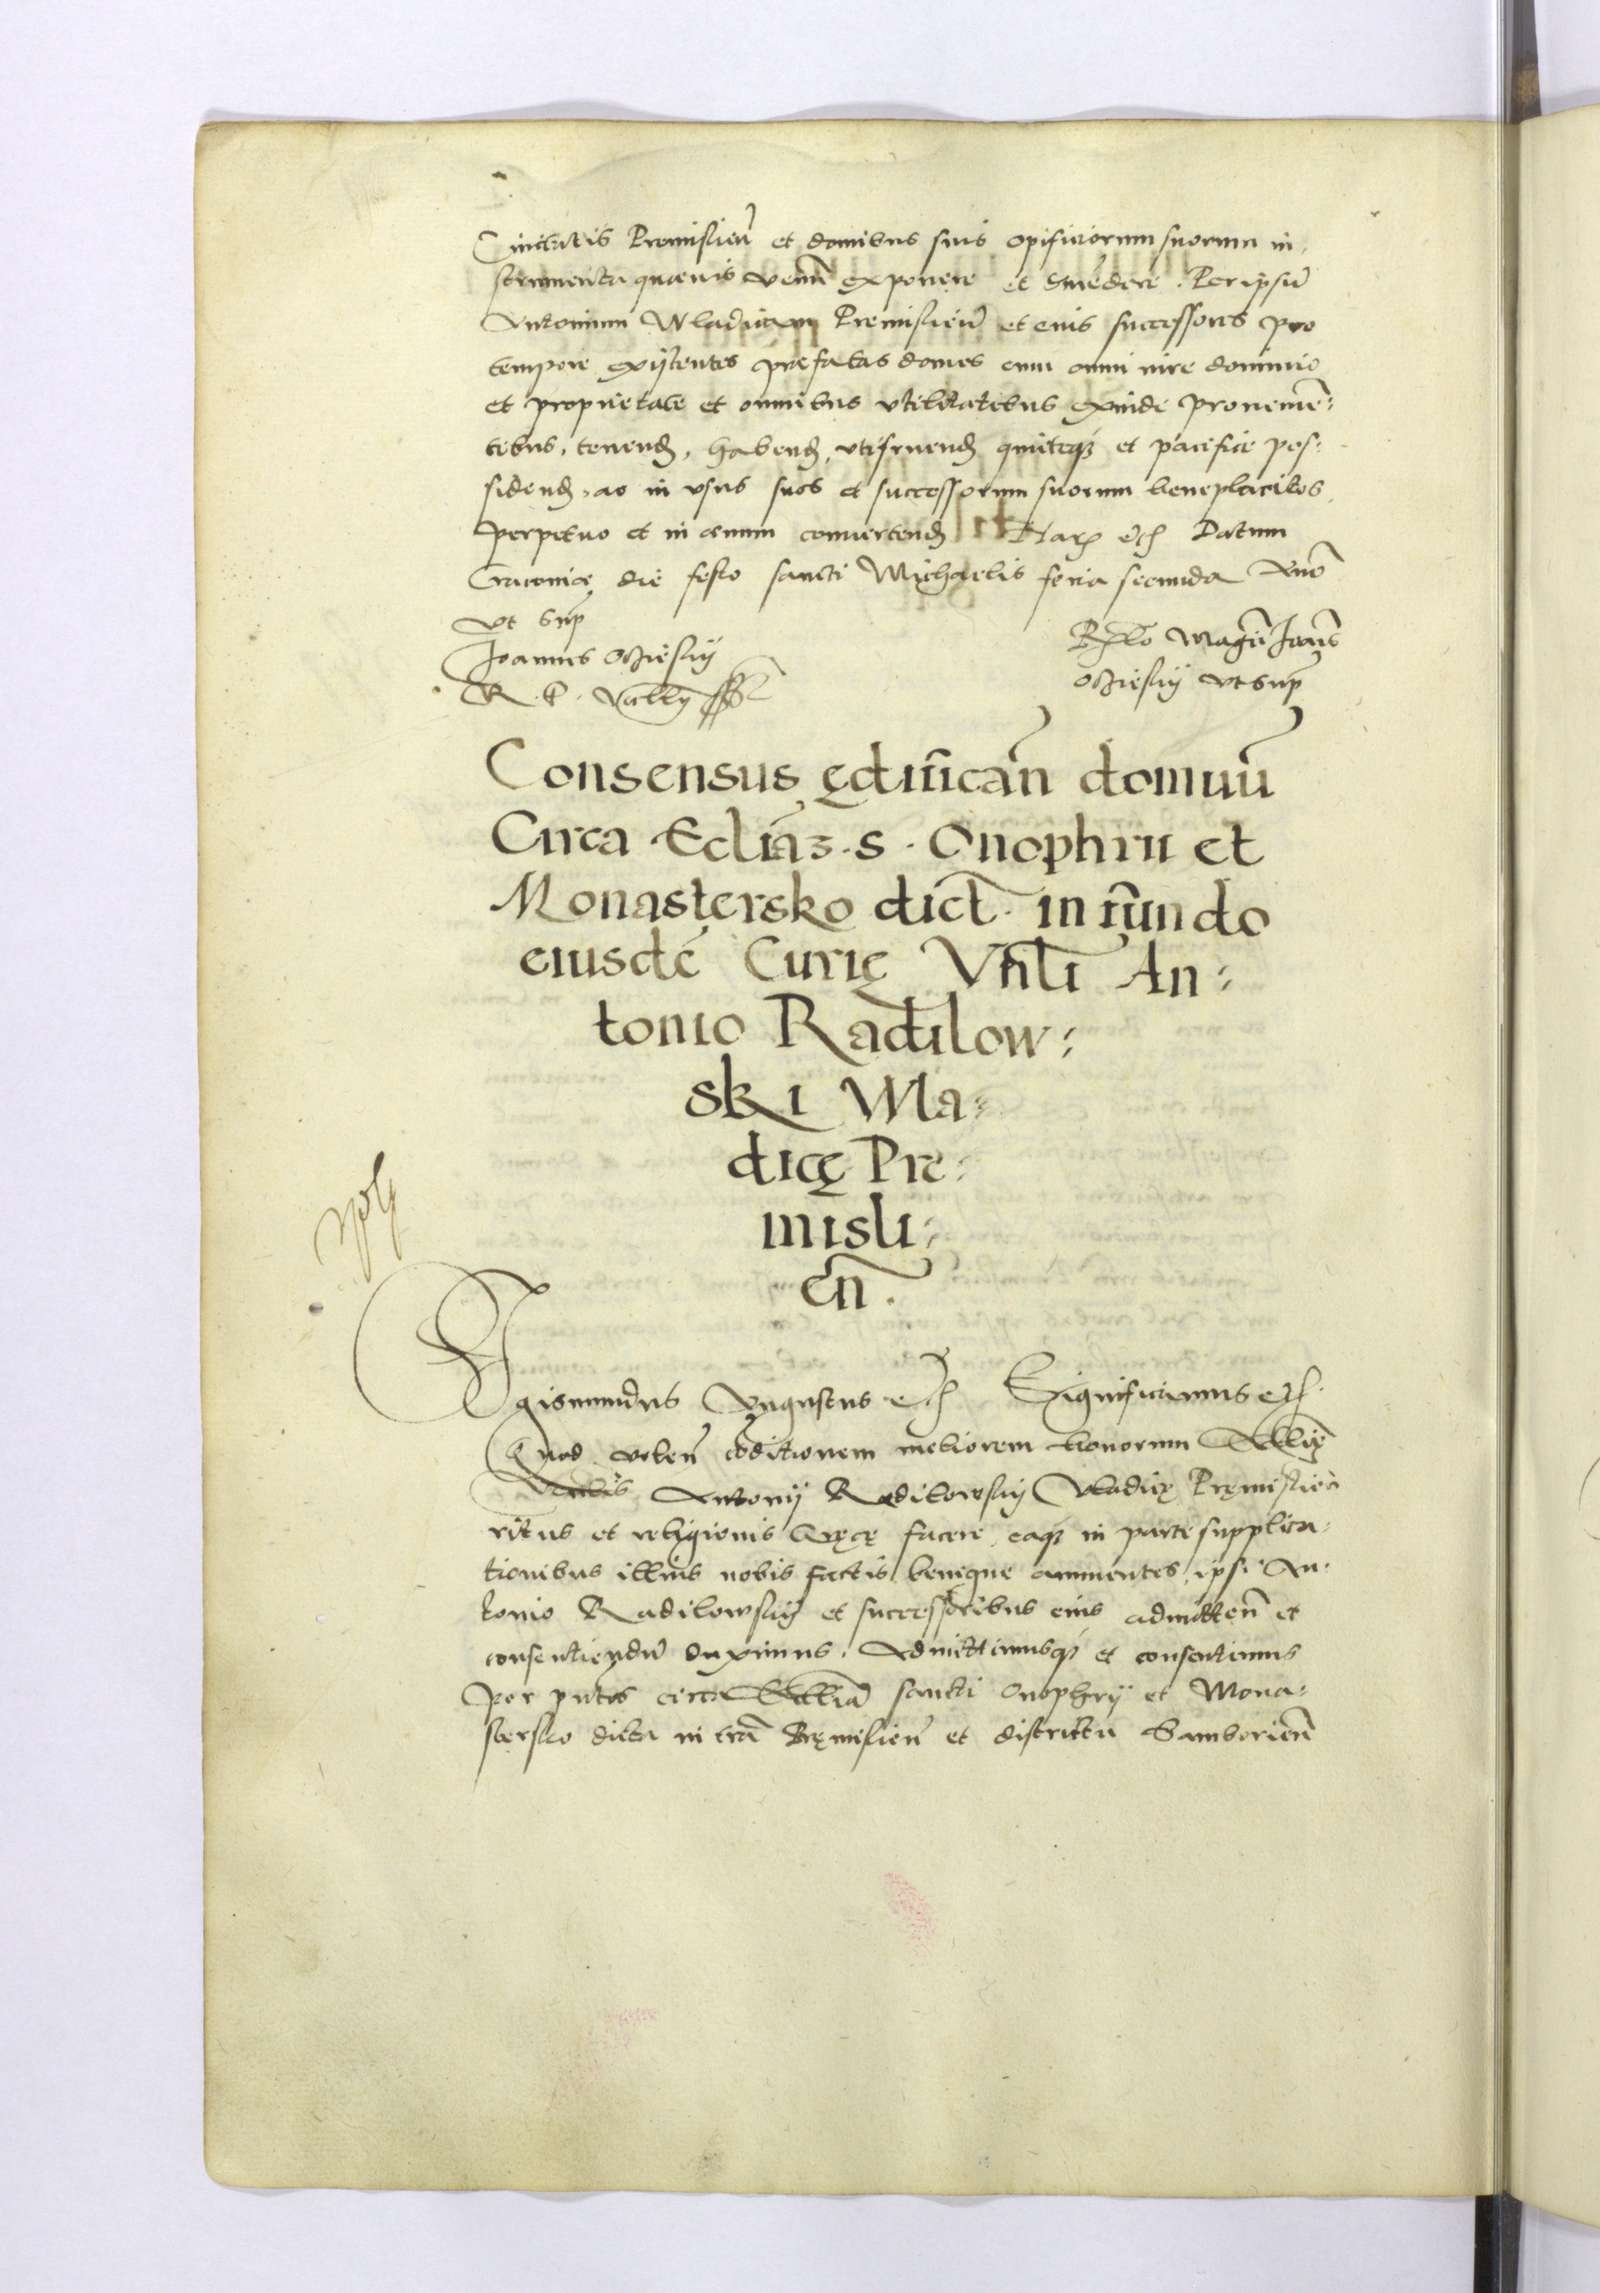 Ciuitatis Premislien̄ et domibus suis opificiorum suorum in-
strumenta quaeuis venū exponere et vēdere. Per ipsū
Antonium Wladicam Premislien̄ et eius successores pro
tempore existentes praefatas domos cum omni iure dominio
et proprietate et omnibus vtilitatibus exinde prouenien̄-
tibus, tenend, habend, vtifruend quieteq3 et pacifice pos-
sidend, ac in vsus suos et successorum suorum beneplacitos
perpetuo et in aeuum conuertend Har etc Datum
Cracouiae die festo sancti Michaelis feria secunda Anno
vt sup
Joannes Ocziesky
R. P. Vicecan
Relo Magci Joannis
Ocziesky vt sup
Consensus ędificān domuū
Circa Ecliāʒ. S. Onophrii et
Monastersko dict. in fundo
eiusdē Curię Vnli An:
tonio Radilow:
ski Wla:
dicę Pre:
misli:
en̄.
Sigismundus Augustus etc Significamus etc.
Quod volen̄ cōditionem meliorem bonorum Ecclię
Antonij Radilowsky Vladicę Pręmislien̄
ritus et religionis Gręcę facere, eaq3 in parte supplica-
tionibus illius nobis factis benigne annuentes, ipsi An-
tonio Radilowsky et successoribus eius admitten̄ et
consentiendū duximus. Admittimusq3 et consentimus
per pntes circa Eccliā sancti Onophrij et Mona-
stersko dicta in trā Pręmislien̄ et districtu Samborien̄